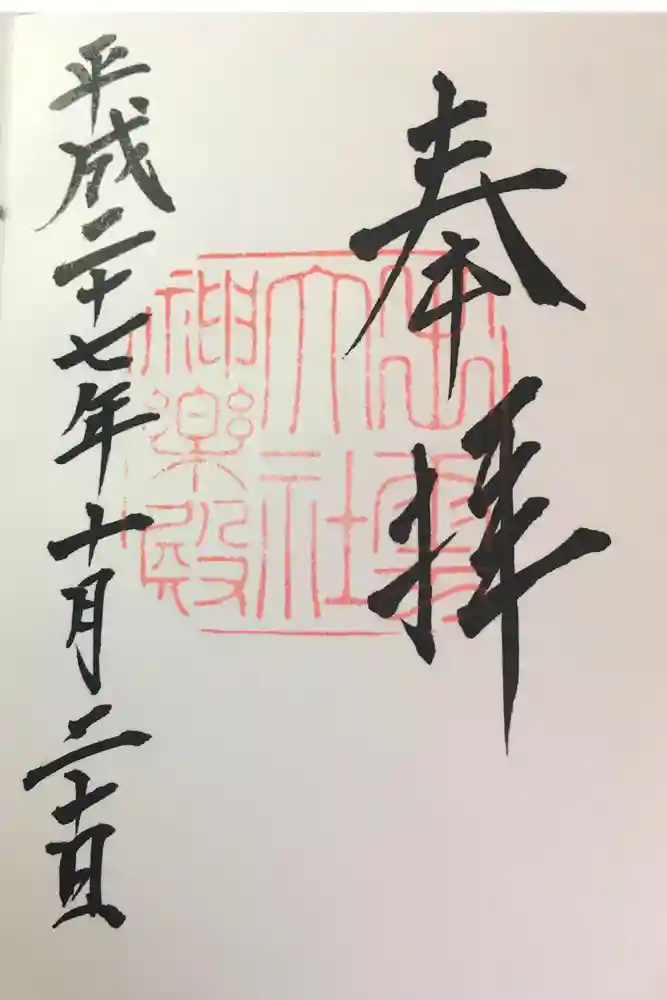 奉拝
出雲
大社
神樂殿
平成二十七年十月二十日